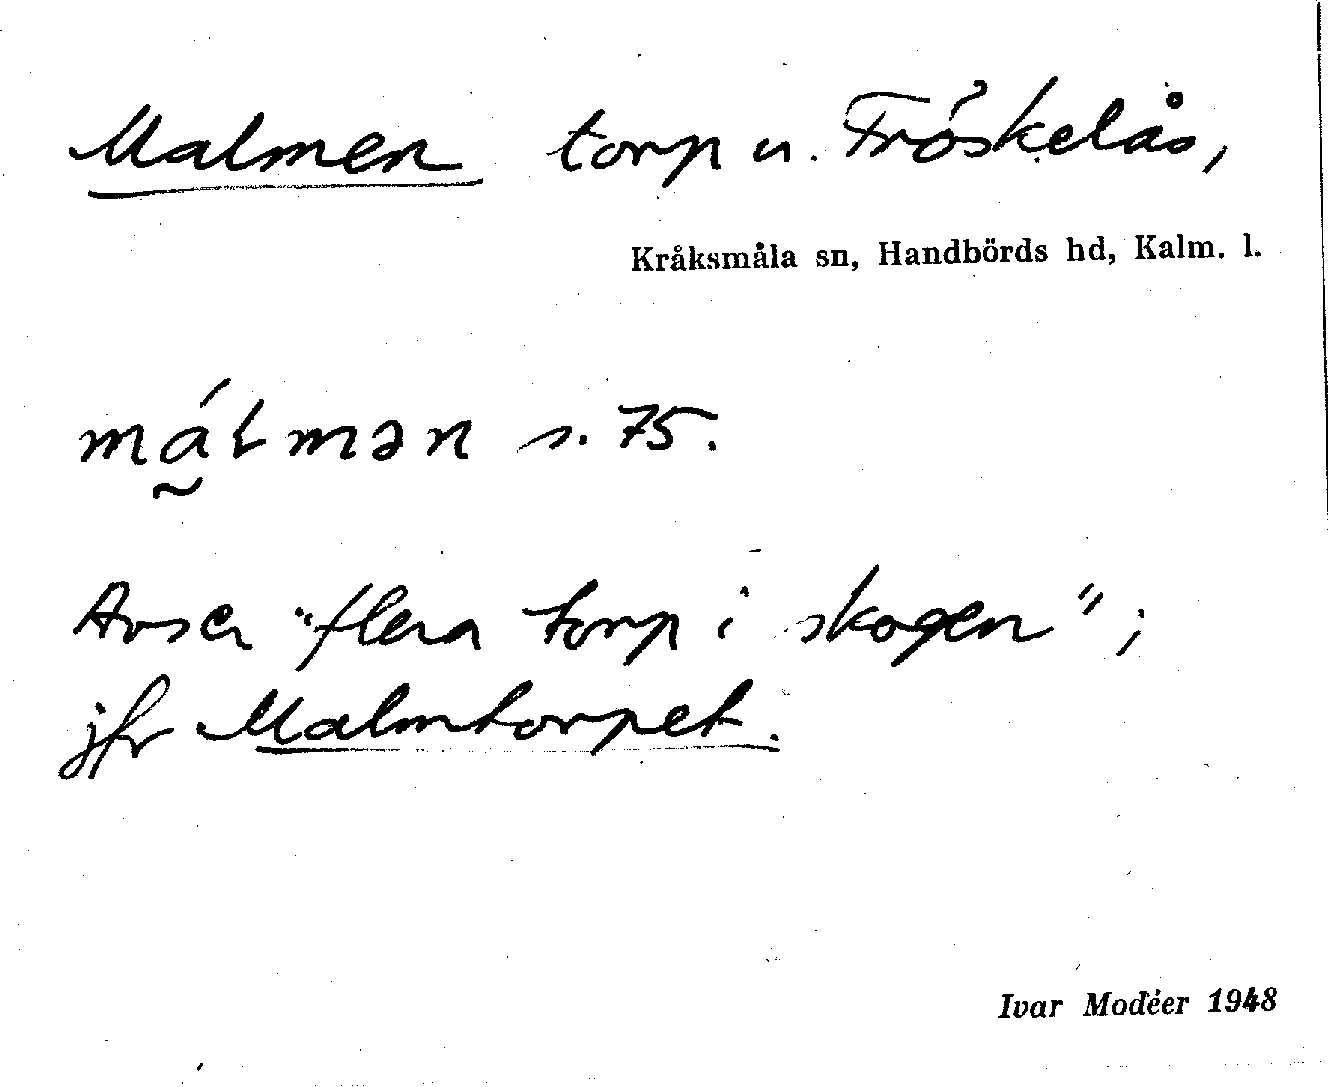 Malmen torp u. Fröskelås,
Kråksmåla sn, Handbörds hd, Kalm. l.
má̰Lmən s. 75.
Avser "flera torp i skogen";
jfr Malmtorpet.
Ivar Modéer 1948